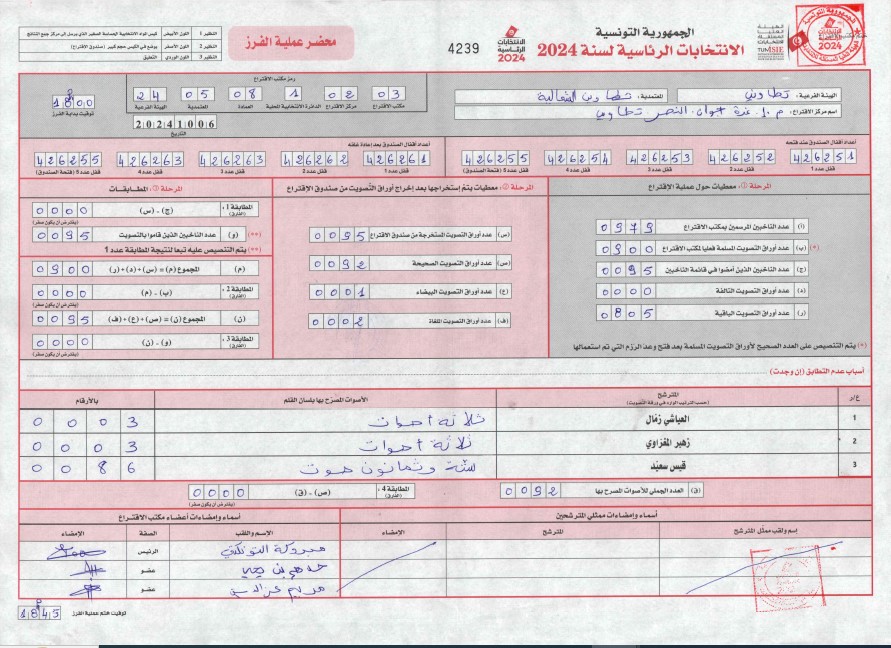 الجمهورية التونسية
الانتخابات الرئاسية لسنة 2024
الانتخابات الرئاسية 2024
4239
محضر عملية الفرز
النظير 1 اللون الأبيض
النظير 2 اللون الأحمر يوضع في الكيس حجم كبير (صندوق الاقتراع)
النظير 3 اللون الوردي التعليق
الهيئة الفرعية: تطاوين المعتمدية: تطاوين الشمالية
اسم مركز الاقتراع:
رمز مكتب الاقتراع
03 02 1 08 05 24
مكتب الاقتراع مركز الاقتراع الدائرة الانتخابية المحلية العمادة المعتمدية الهيئة الفرعية
20241006
التاريخ
1800
توقيت بداية الفرز
أعداد أقفال الصندوق عند فتحه
426251 426252 426253 426254 426255
قفل عدد 1 قفل عدد 2 قفل عدد 3 قفل عدد 4 قفل عدد 5 (فتحة الصندوق)
أعداد أقفال الصندوق بعد إعادة غلقه
426261 426262 426263 426263 426255
قفل عدد 1 قفل عدد 2 قفل عدد 3 قفل عدد 4 قفل عدد 5 (فتحة الصندوق)
المرحلة ①: معطيات حول عملية الاقتراع
(أ) عدد الناخبين المرسمين بمكتب الاقتراع 0979
(*) (ب) عدد أوراق التصويت المسلمة فعليا لمكتب الاقتراع 0900
(ج) عدد الناخبين الذين أمضوا في قائمة الناخبين 0095
(د) عدد أوراق التصويت التالفة 0000
(ر) عدد أوراق التصويت الباقية 0805
(*) يتم التنصيص على العدد الصحيح لأوراق التصويت المسلمة بعد فتح وعد الرزم التي تم استعمالها
المرحلة ②: معطيات يتم إستخراجها بعد إخراج أوراق التصويت من صندوق الاقتراع
(س) عدد أوراق التصويت المستخرجة من صندوق الاقتراع 0095
(ص) عدد أوراق التصويت الصحيحة 0092
(ع) عدد أوراق التصويت البيضاء 0001
(ف) عدد أوراق التصويت الملغاة 0002
المرحلة ③: المطابقات
المطابقة 1: (الفارق) (ج) - (س) 0000
(يفترض أن يكون صفر)
(**) (و) عدد الناخبين الذين قاموا بالتصويت 0095
(**) يتم التنصيص عليه تبعا لنتيجة المطابقة عدد 1
(م) المجموع (م) = (س)+(د)+(ر) 0900
المطابقة 2: (الفارق) (ب) - (م) 0000
(يفترض أن يكون صفر)
(ن) المجموع (ن) = (ص)+(ع)+(ف) 0095
المطابقة 3: (الفارق) (و) - (ن) 0000
أسباب عدم التطابق (إن وجدت)
ع/ر المترشح الأصوات المصرّح بها بلسان القلم بالأرقام
(حسب الترتيب الوارد في ورقة التصويت)
1 العياشي زمّال ثلاثة أصوات 0003
2 زهير المغزاوي ثلاثة أصوات 0003
3 قيس سعيّد ستة وثمانون صوت 0086
(ق) العدد الجملي للأصوات المصرح بها 0092 المطابقة 4: (الفارق) (ص) - (ق) 0000
(يفترض أن يكون صفر)
أسماء وإمضاءات ممثلي المترشحين
إسم ولقب ممثل المترشح المترشح الإمضاء
أسماء وإمضاءات أعضاء مكتب الاقتراع
الإسم واللقب الصفة الإمضاء
الرئيس
عضو
عضو
توقيت ختم عملية الفرز 1845